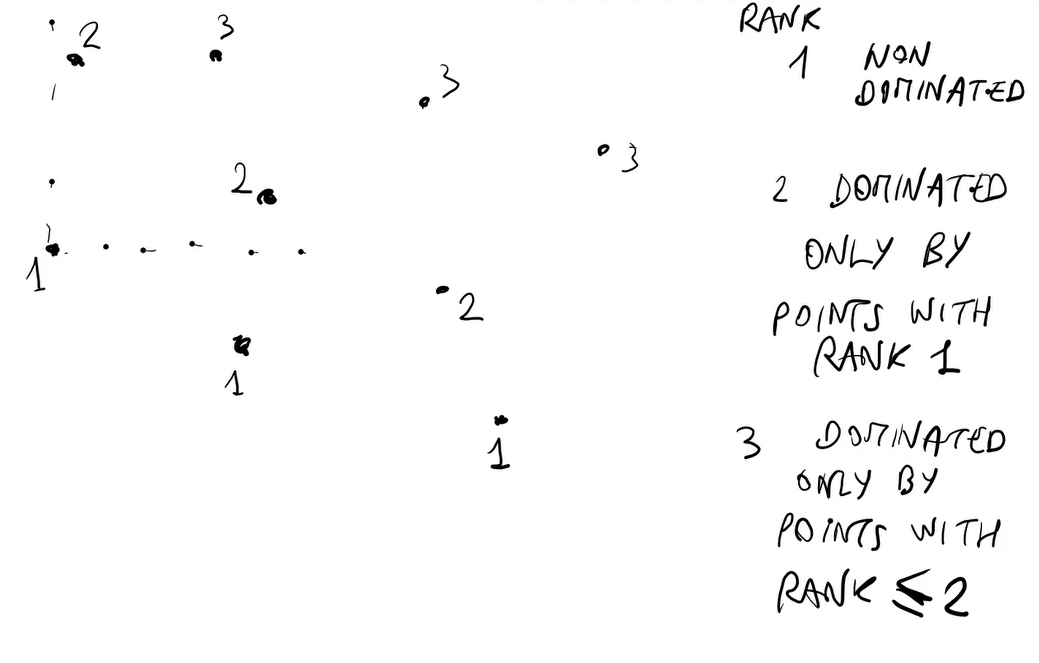 2
3
3
3
2
1
2
1
1
RANK
1 NON
DOMINATED
2 DOMINATED
ONLY BY
POINTS WITH
RANK 1
3 DOMINATED
ONLY BY
POINTS WITH
RANK ≤ 2